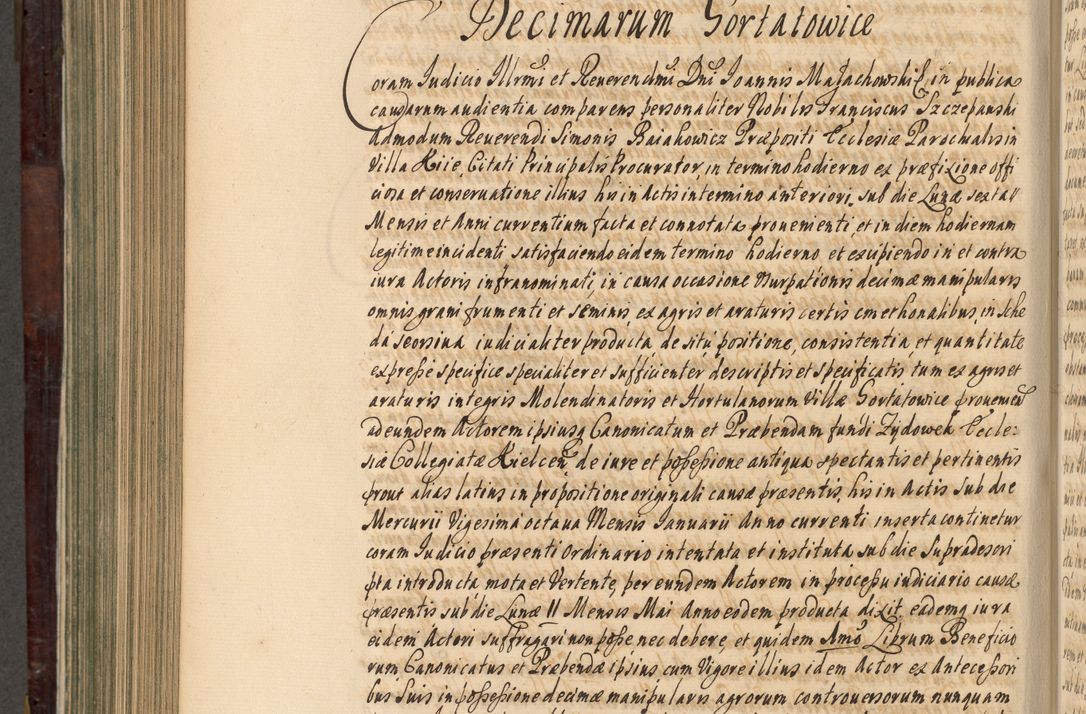 Decimarum Gortatowice
Coram Iudicio Illrmi et Reuerendmi Dni Ioannis Małachowski E, in publica
causarum audientia comparens personaliter Nobilis Franciscus Szczepanski
Admodum Reuerendi Simonis Baiakowicz Præpositi Ecclesiæ Parochialis in
Villa Kiie, Citati Principalis Procurator, in termino hodierno ex præfixione offi
ciosa et conseruatione illius his in Actis in termino anteriori, sub die Lunæ sexta
Mensis et Anni currentium facta et connotata prouenienti, et in diem hodiernam
legitime incidenti satisfaciendo eidem termino hodierno et excipiendo in et contra
iura Actoris infranominati, in causa occasione Vsurpationis decimæ manipularis
omnis grani frumenti et seminis, ex agris et araturis certis cmethonalibus, in Sche
da seorsiua iudicialiter producta de situ positione, consistentia et quantitate
expresse specifice specialiter et sufficienter descriptis et specificatis tum ex agris et
araturis integris Molendinatoris et Hortulanorum Villæ Gortatowice prouenien
ad eundem Actorem ipsiusq Canonicatum et Præbendam fundi Zydowek Eccle:
siæ Collegiatæ Kielcen, de iure et possessione antiqua spectantis et pertinentis
prout alias latius in propositione originali causæ præsentis, his in Actis sub die
Mercurii Vigesima octaua Mensis Ianuarii Anno currenti inserta continetur
coram Iudicio præsenti Ordinario intentata et instituta sub die supradescri
pta introducta mota et Vertente, per eundem Actorem in processu iudiciario causæ
præsentis sub die Lunæ 11 Mensis Mai Anno eodem producta dixit, eademq iura
eidem Actori suffragari non posse nec debere, et quidem Amo Librum Beneficio
rum Canonicatus et Præbendæ ipsius cum Vigore illius idem Actor ex Antecessori
bus suis in possessione decimæ manipularis agrorum controuersorum nunquam